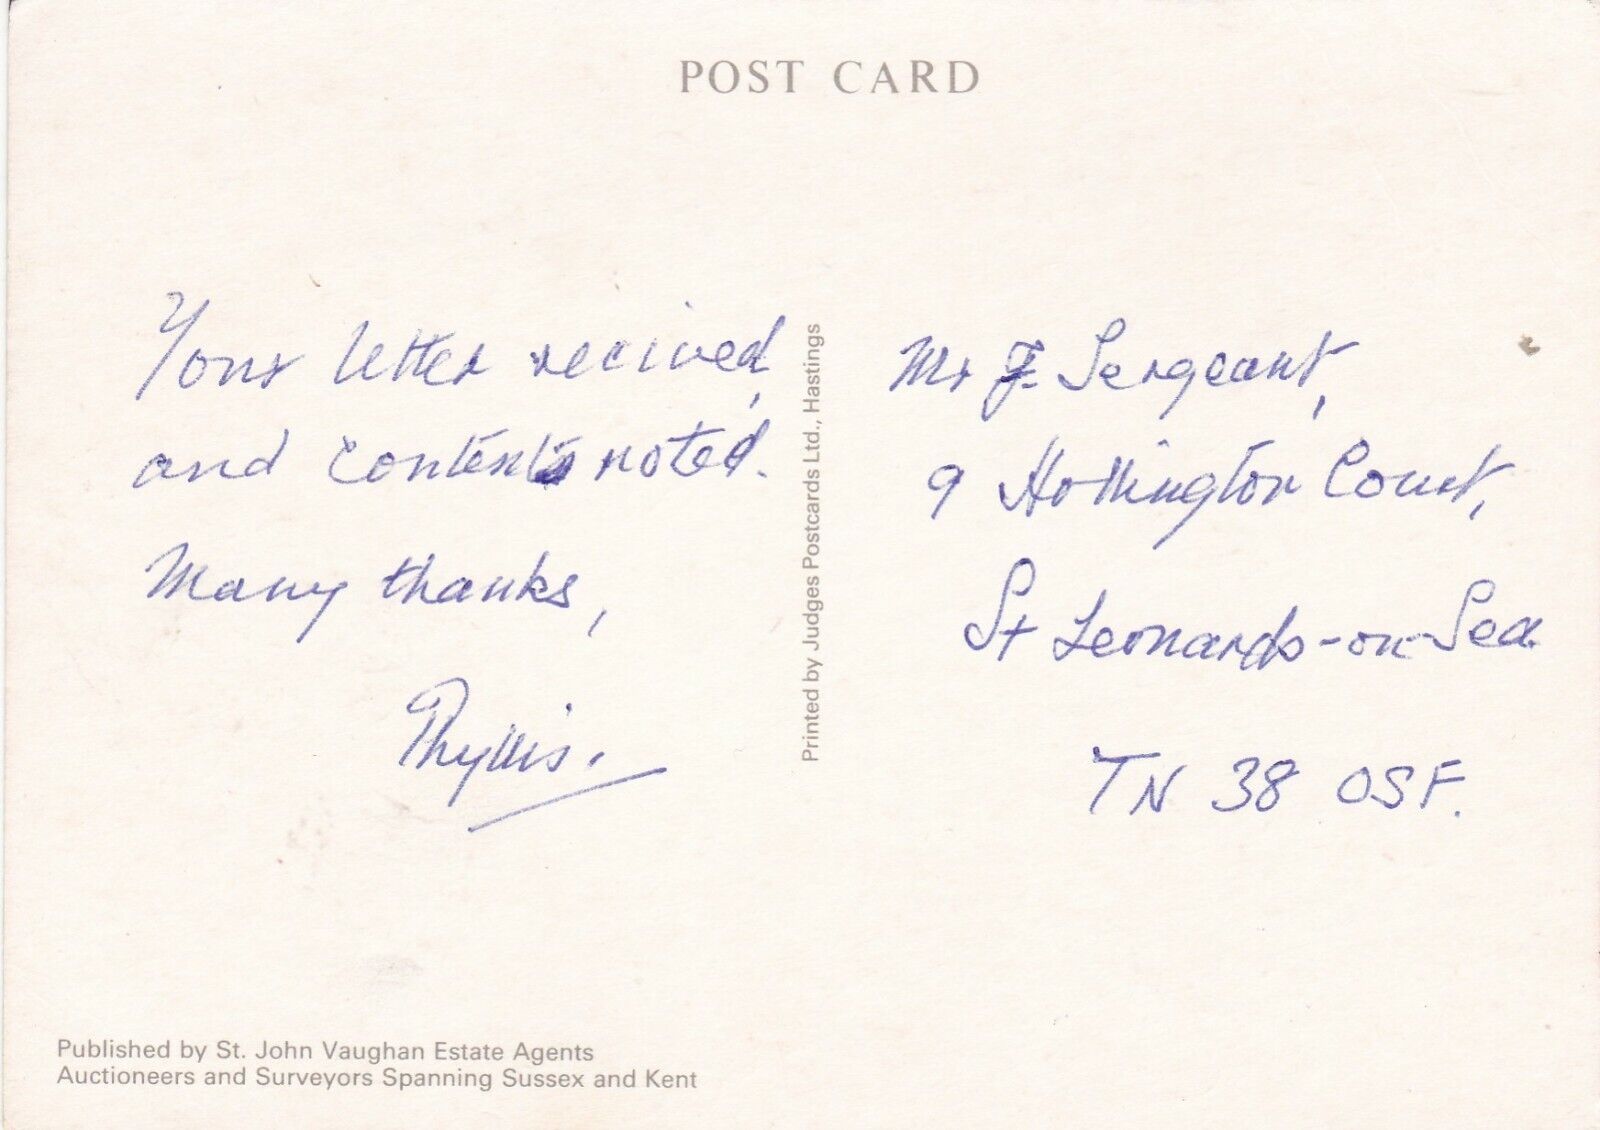 POST CARD
Your letter recived,
and contents noted.
Many thanks,
Phyllis.
Printed by Judges Postcards Ltd., Hastings
Mr F. Sergeant,
9 Hollington Court,
St Leonards-on-Sea
TN 38 OSF.
Published by St. John Vaughan Estate Agents
Auctioneers and Surveyors Spanning Sussex and Kent